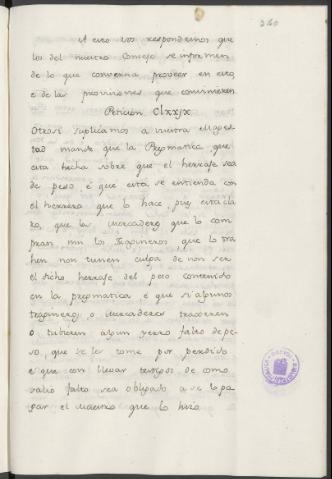 260
A esto vos respondemos que
los del nuestro Consejo se informen
de lo que converna proveer en esto,
e de las provisiones que convinieren
Peticion Clxxjx
Otrosi suplicamos a vuestra Mages-
tad mande que la Pregmatica que
esta hecha sobre que el herraje sea
de peso, e que esta se entienda con
el herrero que lo hace, pues esta cla-
ro, que los Mercaderes que lo com-
pran nin los Tragineros, que lo tra-
hen non tienen culpa de non ser
el dicho herraje del peso contenido
en la pregmatica e que si algunos
tragineros, o Mercaderes traxeren
o tubieren algun yerro falto de pe-
so, que se les tome por perdido
e que con llevar testigos de como
salio falto sea obligado a se lo pa-
gar el Maestro que lo hizo